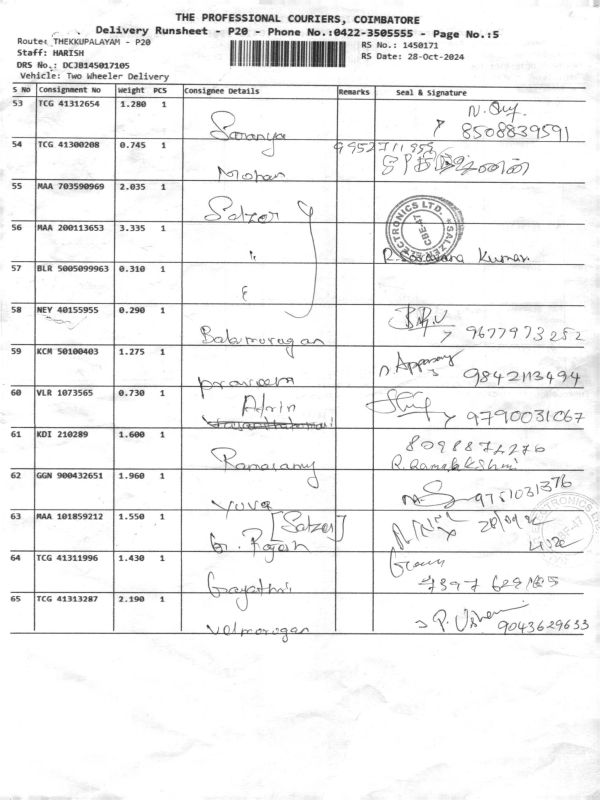 THE PROFESSIONAL COURIERS, COIMBATORE
Delivery Runsheet - P20 - Phone No.:0422-3505555 - Page No.:5
Route: THEKKUPALAYAM - P20
RS No.: 1450171
Staff: HARISH
RS Date: 28-Oct-2024
DRS No.: DCJB145017105
Vehicle: Two Wheeler Delivery
S No Consignment No Weight PCS Consignee Details Remarks Seal & Signature
53 TCG 41312654 1.280 1
Saranya 8508839591
54 TCG 41300208 0.745 1
Mohan
55 MAA 703590969 2.035 1
Salzer
56 MAA 200113653 3.335 1
"
SALZER ELECTRONICS LTD. CBE-47
R. Saravana Kumar
57 BLR 5005099963 0.310 1
58 NEY 40155955 0.290 1
Balamurugan 9677973252
59 KCM 50100403 1.275 1
praveen 9842113494
60 VLR 1073565 0.730 1
9790031067
61 KDI 210289 1.600 1
Ramasamy 8098872270
R. Ramalakshmi
62 GGN 900432651 1.960 1
Yuva 9751031376
63 MAA 101859212 1.550 1
[Salzer]
G. Rajesh
64 TCG 41311996 1.430 1
Gayathri
65 TCG 41313287 2.190 1
velmurugan P. Usha 9043629633